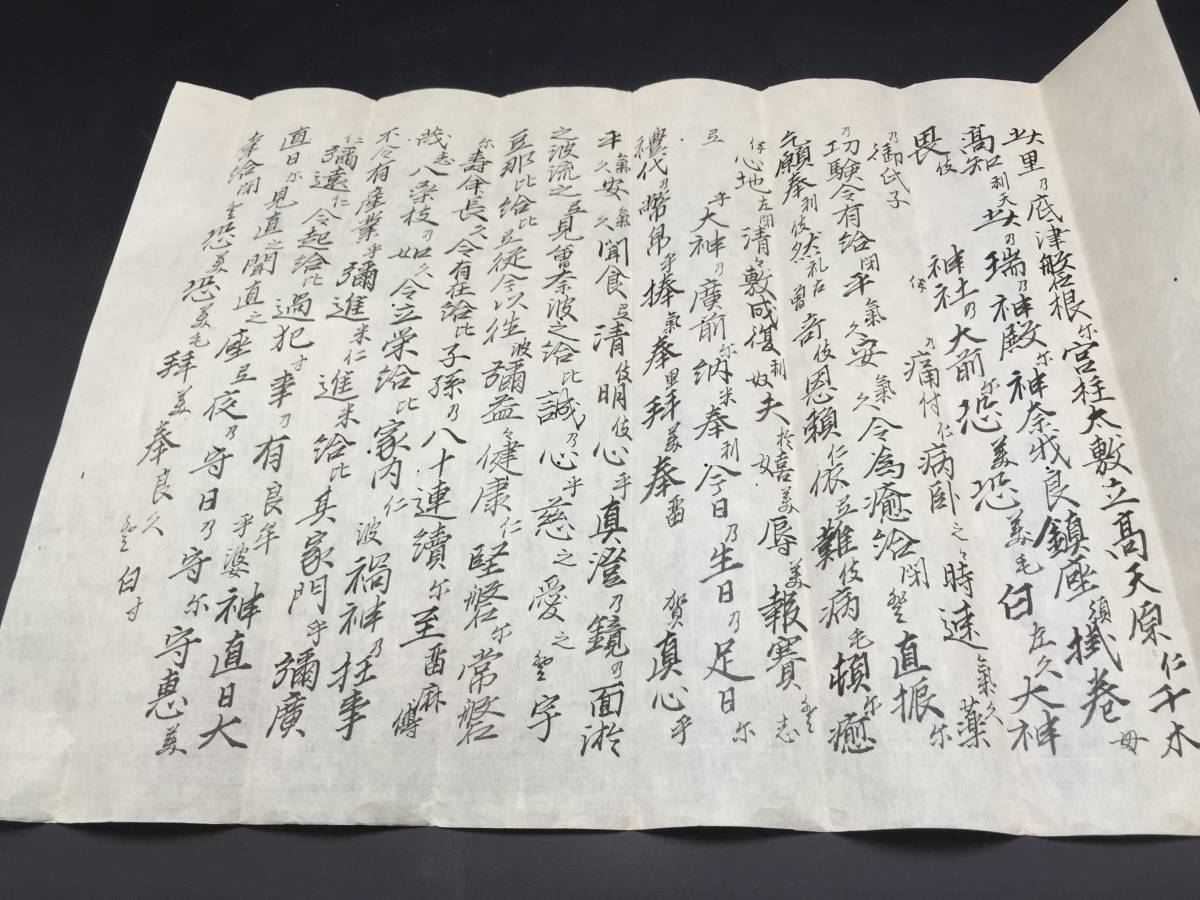 此大里乃底津磐根尓宮柱太敷立高天原仁千木
高知利天此乃瑞乃神殿尓神奈我良鎮座須掛巻毋
畏伎 神社乃大前尓恐美恐美毛白左久大神
乃御氏子 乃痛付仁病卧之々時速氣久薬
乃功験令有給閉平氣久安氣久令為癒給閉登直振尓
乞願奉利伎然礼左曽奇伎恩頼仁依弖難伎病毛頓尓癒
心地左閉清々敷成復利奴夫於嬉美辱美報賽登志
弖 乎大神乃廣前尓納米奉利今日乃生日乃足日尓
禮代乃幣帛乎捧氣奉里拜美奉留 賀真心乎
平氣久安氣久聞食弖清伎明伎心乎真澄乃鏡乃面淤
之波流之弖見曽奈波之給比誠乃心乎慈之愛之登宇
豆那比給比弖従今以往波彌益々健康仁堅磐尓常磐
尓壽命長久令有在給比子孫乃八十連續尓至留麻傳
茂志八桑枝乃如久令立栄給比家内仁波禍神乃枉事
不令有産業乎彌進米仁進米給比其家門乎彌廣
仁彌遠仁令起給比過犯寸事乃有良牟乎婆神直日大
直日尓見直之聞直之座弖夜乃守日乃守尓守惠美
幸給閉登恐美恐美毛拜美奉良久登白寸